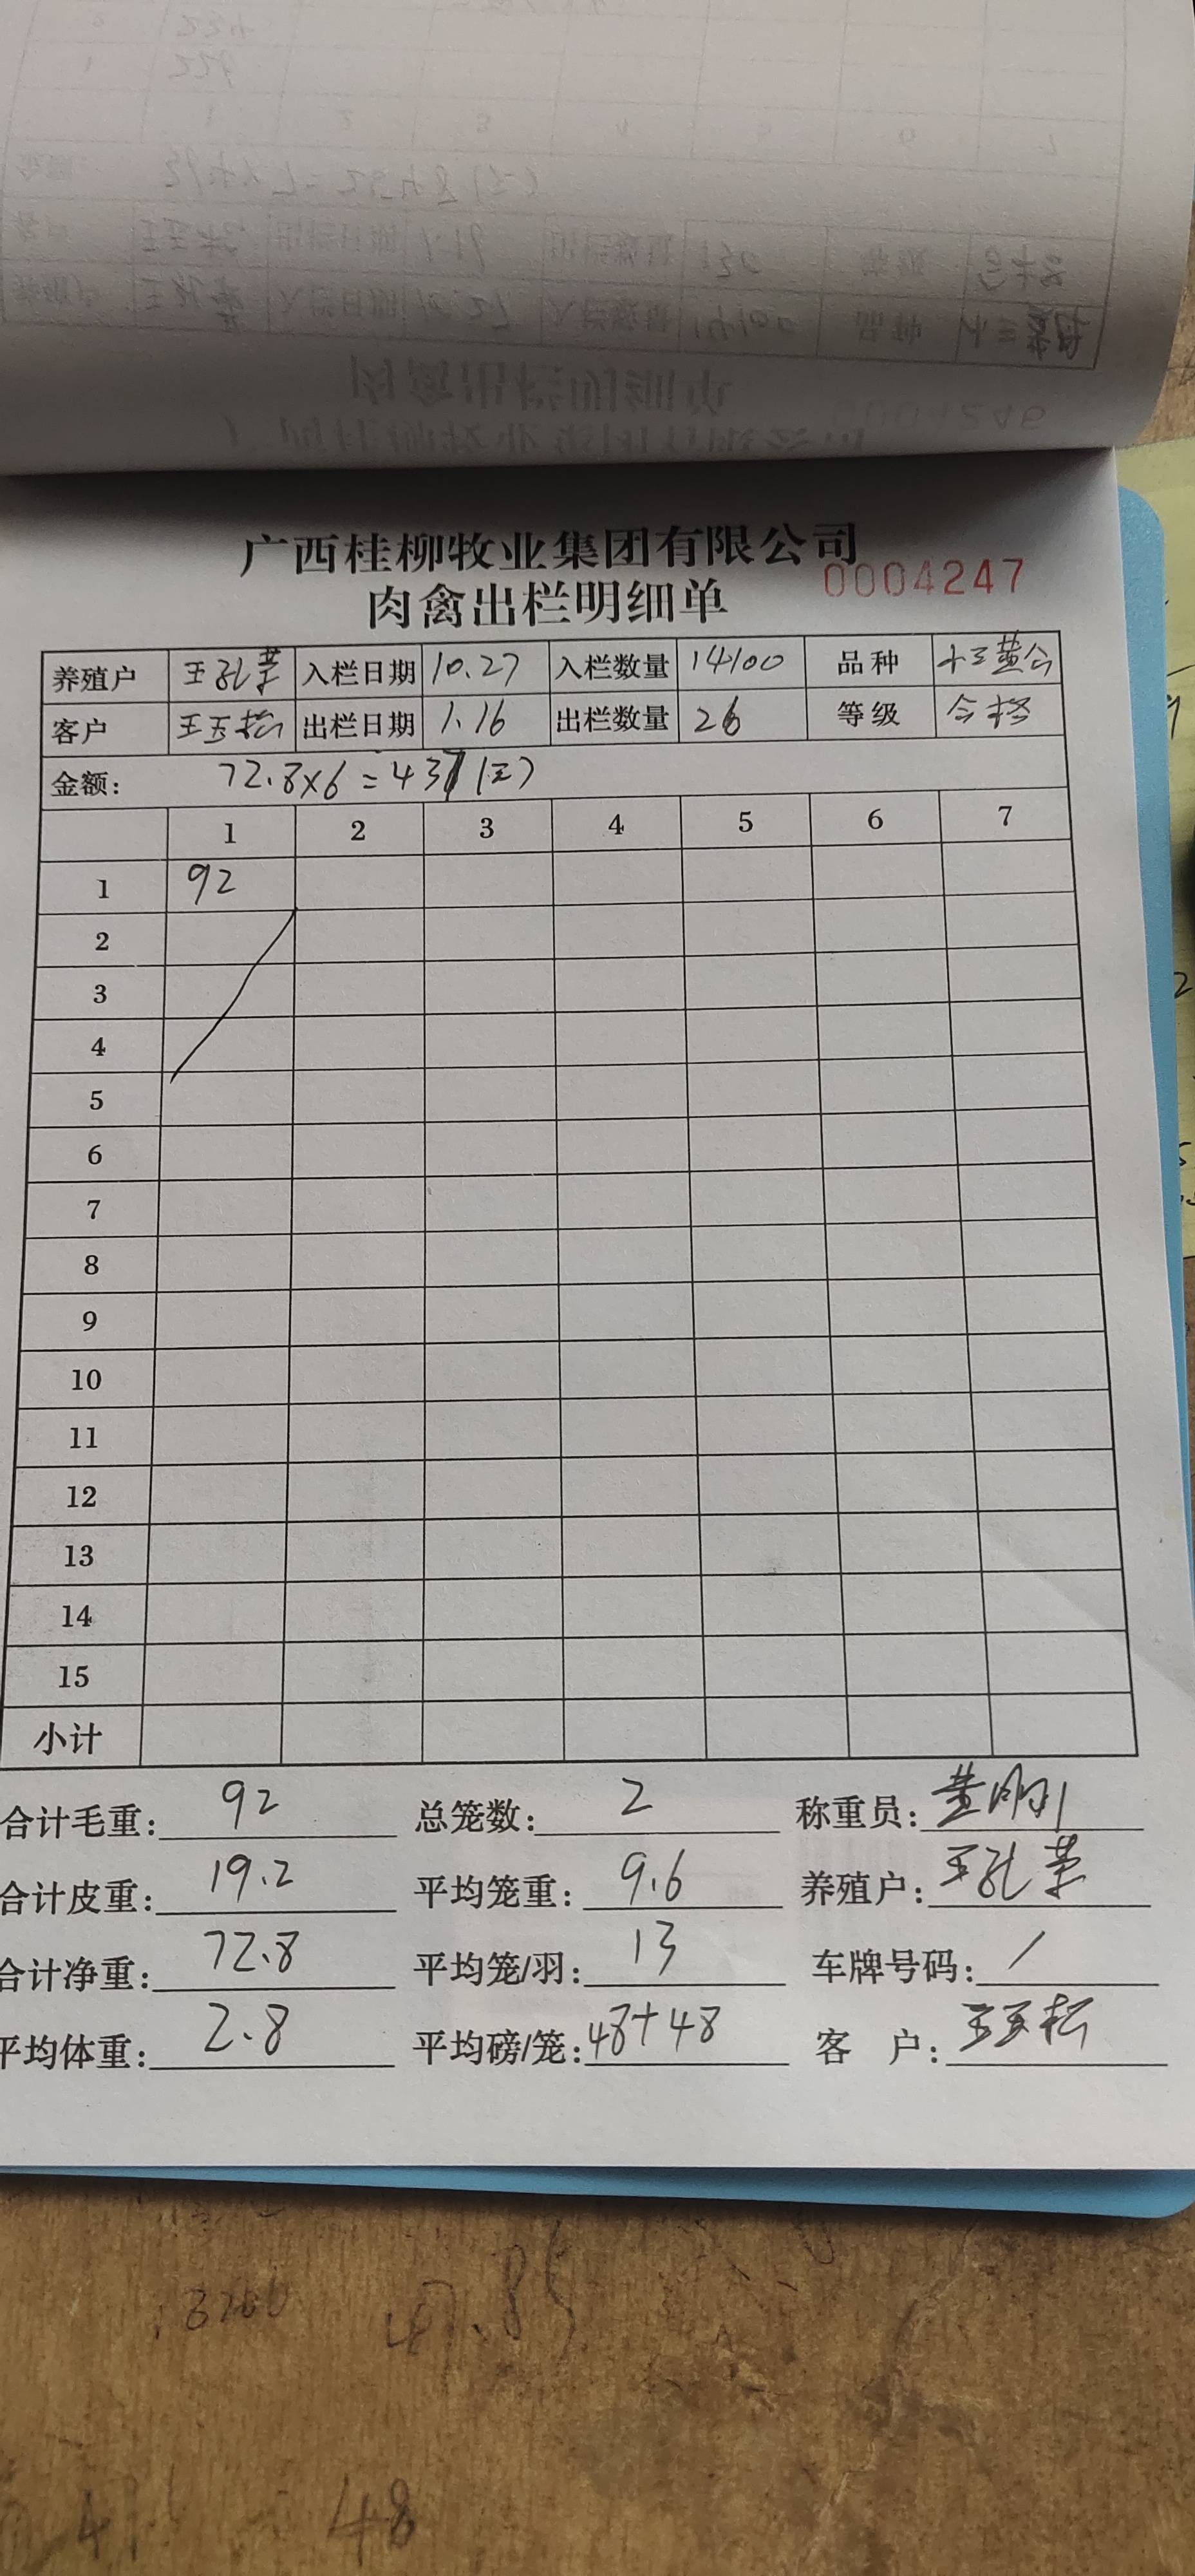 广西桂柳牧业集团有限公司
肉禽出栏明细单 0004247
养殖户 王孔荣 入栏日期 10.27 入栏数量 14100 品种 十三黄公
客户 王玉松 出栏日期 1.16 出栏数量 26 等级 合格
金额: 72.8×6=437(元)
1 2 3 4 5 6 7
1 92
2
3
4
5
6
7
8
9
10
11
12
13
14
15
小计
合计毛重: 92 总笼数: 2 称重员: 黄明
合计皮重: 19.2 平均笼重: 9.6 养殖户: 王孔荣
合计净重: 72.8 平均笼/羽: 13 车牌号码: /
平均体重: 2.8 平均磅/笼: 48+48 客 户: 王玉松
47.85
48